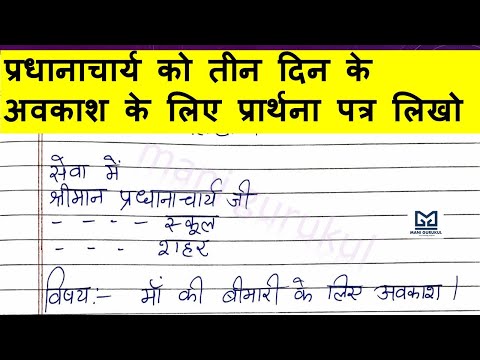 प्रधानाचार्य को तीन दिन के
अवकाश के लिए प्रार्थना पत्र लिखो
सेवा में
श्रीमान प्रधानाचार्य जी
- - - - स्कूल
- - - शहर
विषय:- माँ की बीमारी के लिए अवकाश ।
mani gurukul
MANI GURUKUL